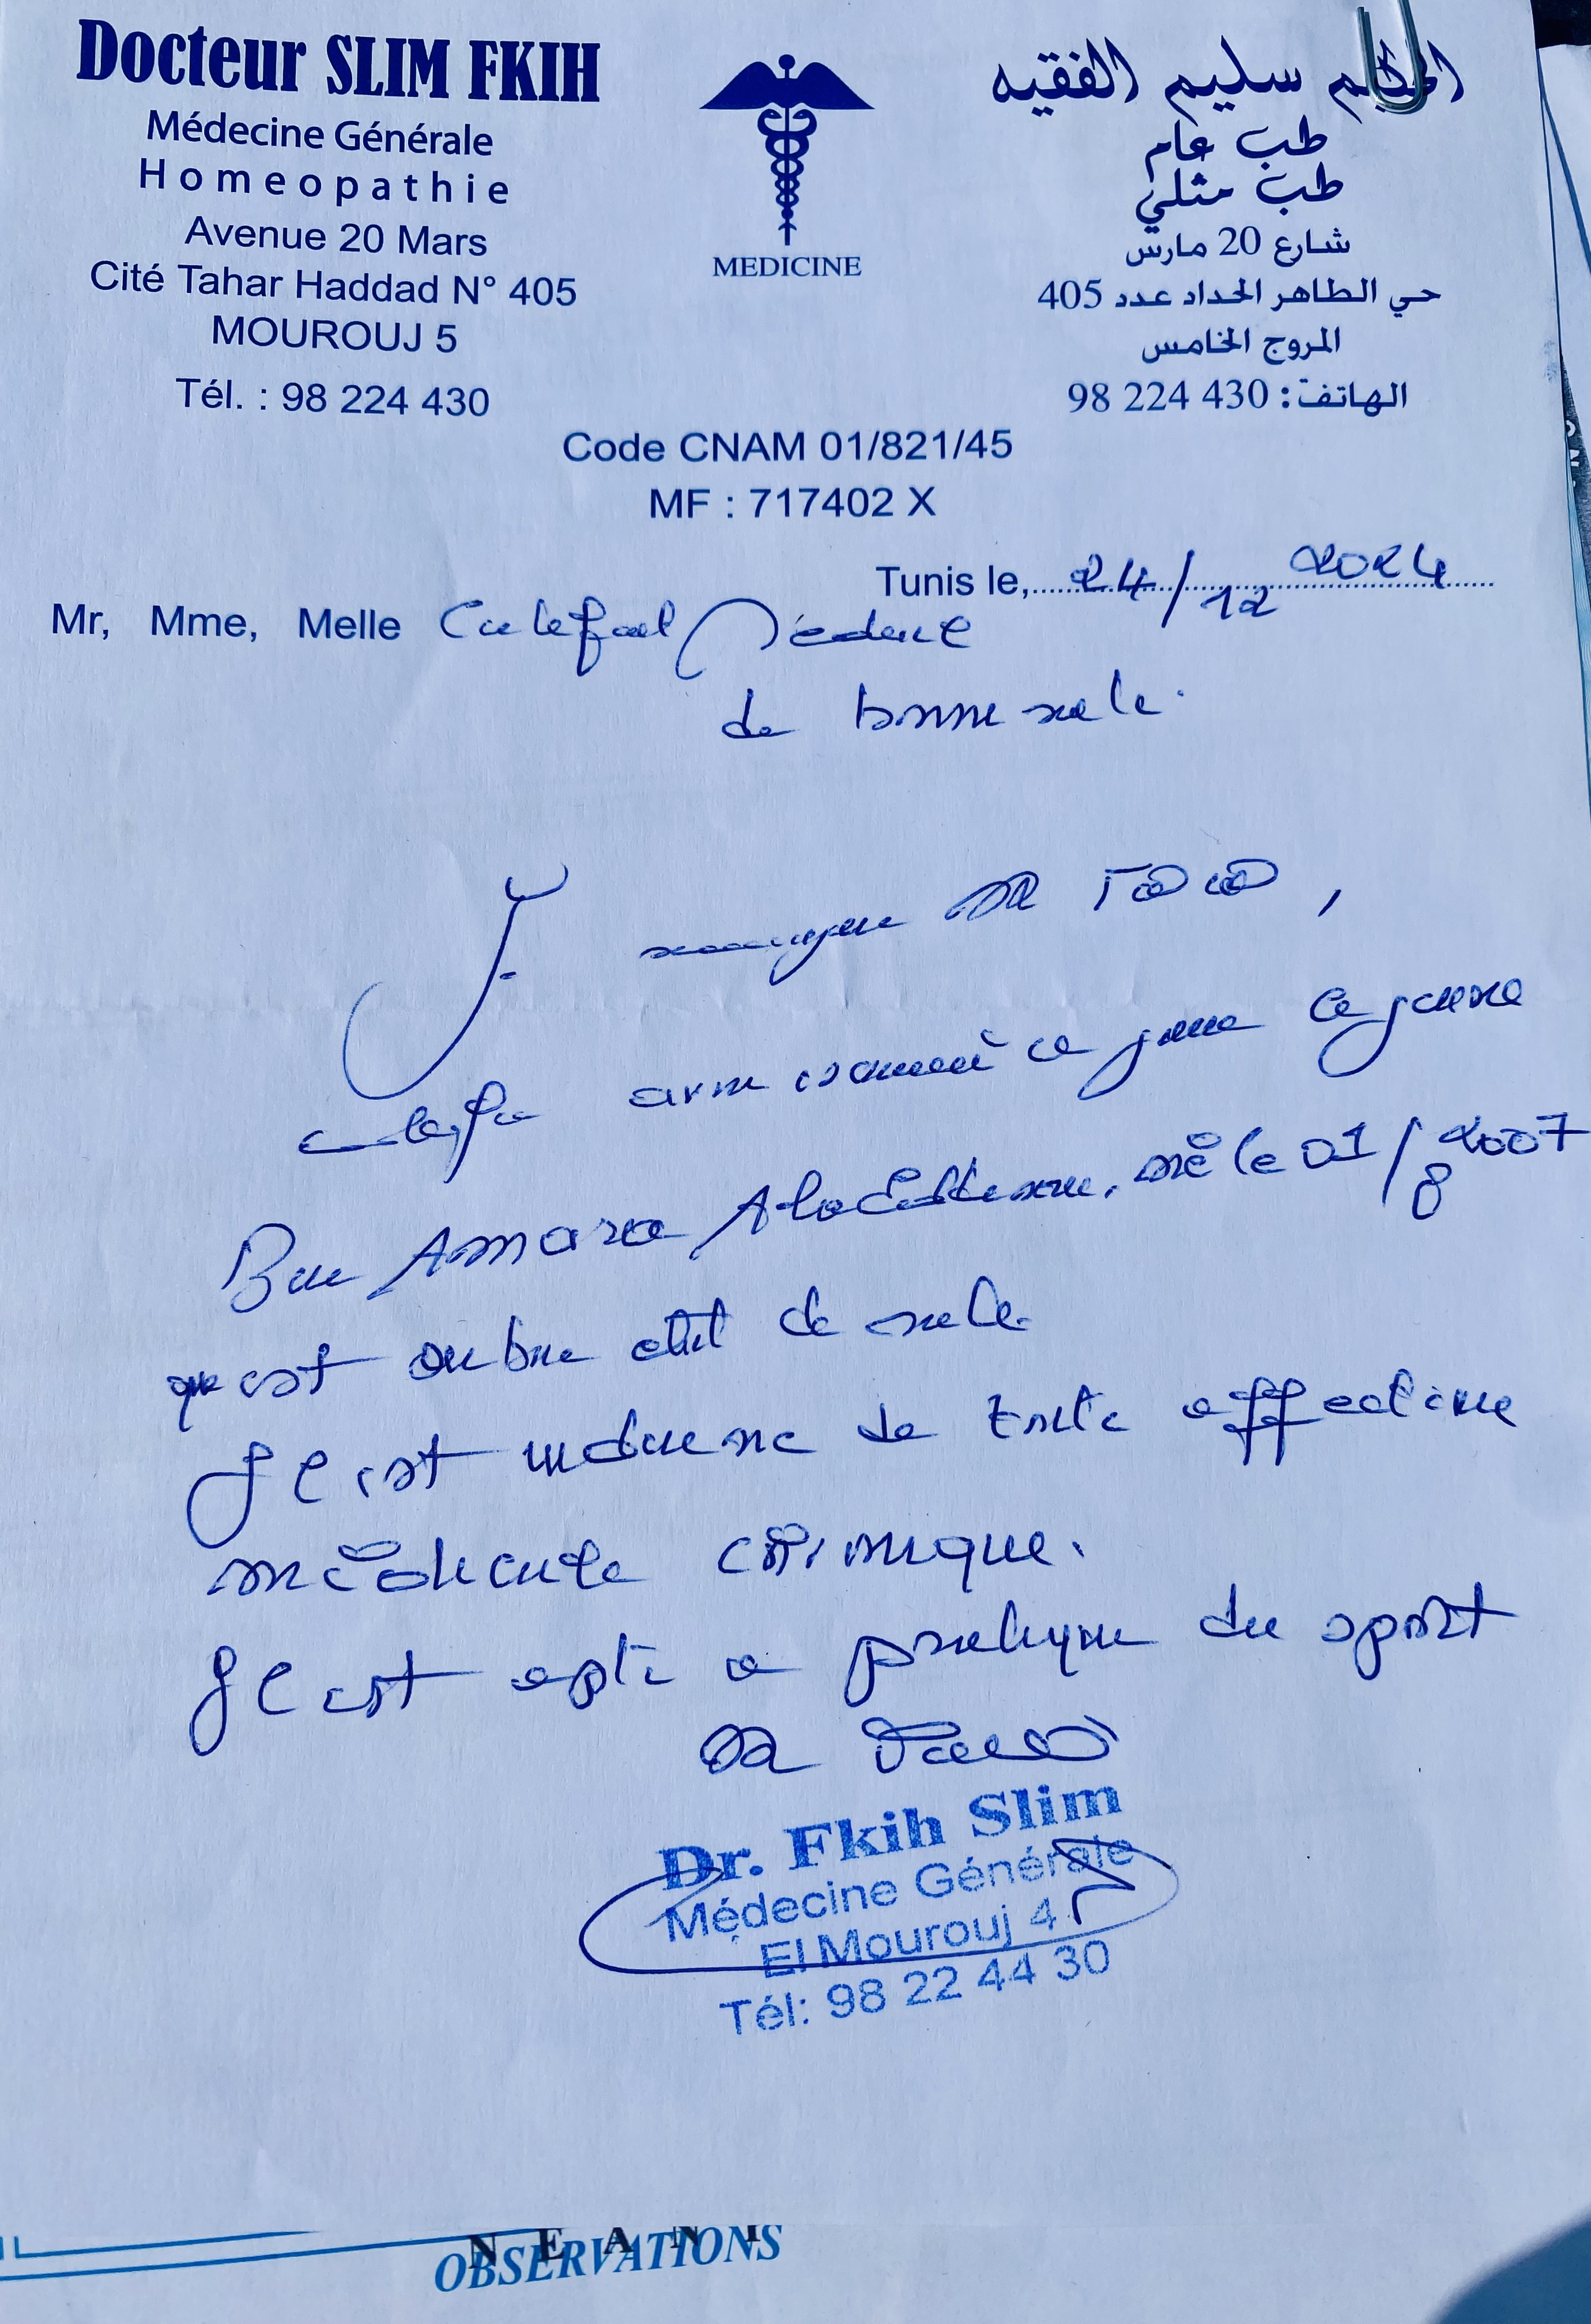 Docteur SLIM FKIH
Médecine Générale
Homeopathie
Avenue 20 Mars
Cité Tahar Haddad N° 405
MOUROUJ 5
Tél. : 98 224 430
MEDICINE
الحكيم سليم الفقيه
طب عام
طب مثلي
شارع 20 مارس
حي الطاهر الحداد عدد 405
المروج الخامس
الهاتف: 430 224 98
Code CNAM 01/821/45
MF : 717402 X
Tunis le, 24/12 2024
Mr, Mme, Melle Certificat Médical
de bonne sante.
Je soussigne DR FKIH,
certifie avoir examiné ce jour le jeune
Ben Amara Ala Eddine, né le 01/8 2007
qui est en bon état de sante
Il est indemne de toute affection
médicale chronique.
Il est apte a pratiquer du sport
DR
Dr. Fkih Slim
Médecine Générale
El Mourouj 4
Tél: 98 22 44 30
NEANT
OBSERVATIONS